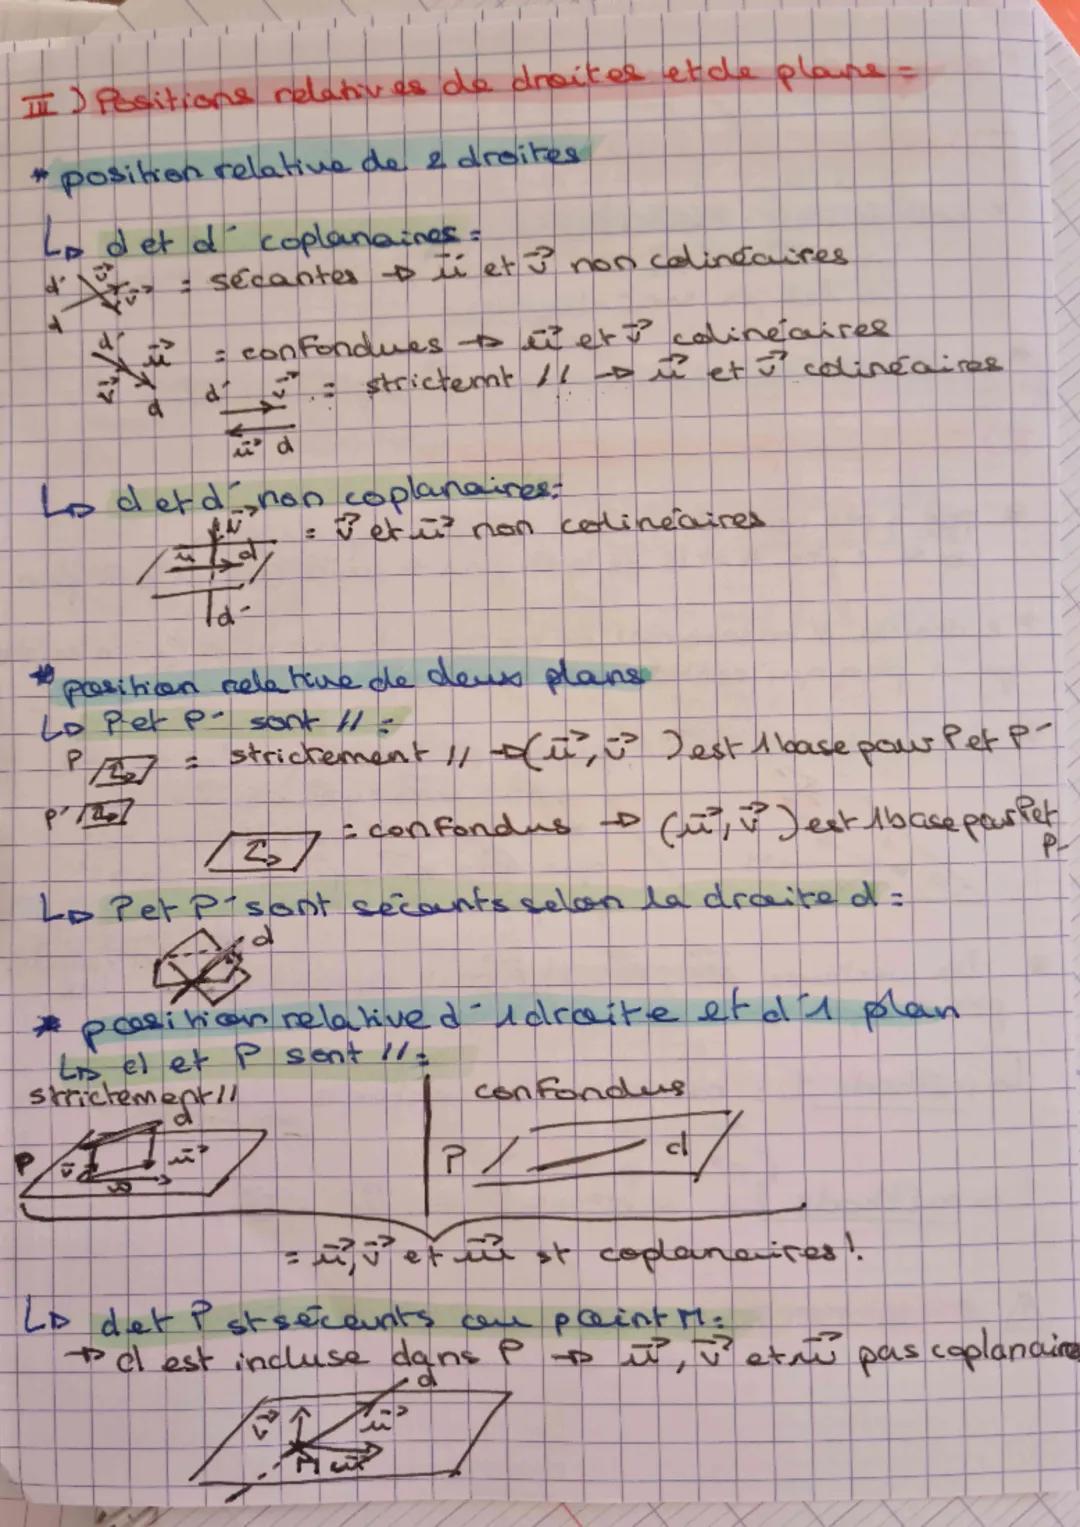 III) Positions relatives de droites et de plans =
* position relative de 2 droites
↳ d et d' coplanaires =
d' v⃗ u⃗ = sécantes → u⃗ et v⃗ non colinéaires
d
d' u⃗ = confondues → u⃗ et v⃗ colinéaires
v⃗ d
d' v⃗ = strictemt // → u⃗ et v⃗ colinéaires
u⃗ d
↳ d et d' non coplanaires =
v⃗ = v⃗ et u⃗ non colinéaires
u d
d'
* position relative de deux plans
↳ P et P' sont // =
P = strictement // → (u⃗, v⃗) est 1 base pour P et P'
P'
= confondus → (u⃗, v⃗) est 1 base pour P et P'
↳ P et P' sont sécants selon la droite d =
d
* position relative d'1 droite et d'1 plan
↳ d et P sont // =
strictement // confondus
d
P v⃗ u⃗ P d
w
= u⃗, v⃗ et w⃗ st coplanaires !
↳ d et P st sécants au point M =
→ d est incluse dans P → u⃗, v⃗ et w⃗ pas coplanaire
d
v⃗ u⃗
M w⃗